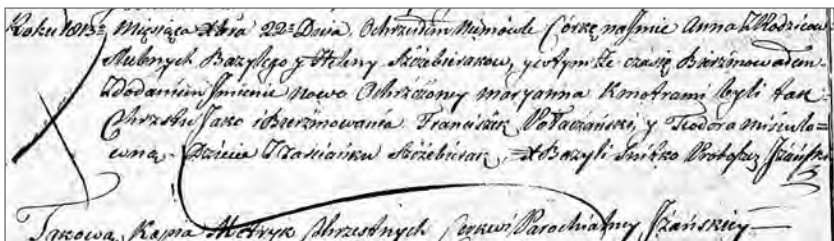 Roku 1813º Miesiąca Xbra 22º Dnia, Ochrzciłem Niemowle Córkę na Jmie Anna Z Rodziców
Slubnych Bazylego y Heleny Szczebieraków, y wtym że czasię Bierzmowałem
Z dodaniem Jmienie nowo Ochrzczoney Maryanna Kmotrami byli tak
Chrztu Jako i Bierzmowania Franciszek Potaczański, y Teodora
Dziecie Szczebierak, X Bazyli Proboszcz
Takowa Kopia Metryk Chrzestnych Cerkwi Parochialney